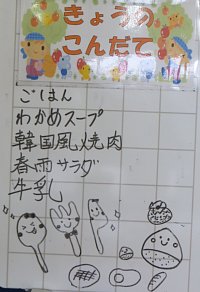 きょうの
こんだて
ごはん
わかめスープ
韓国風焼肉
春雨サラダ
牛乳